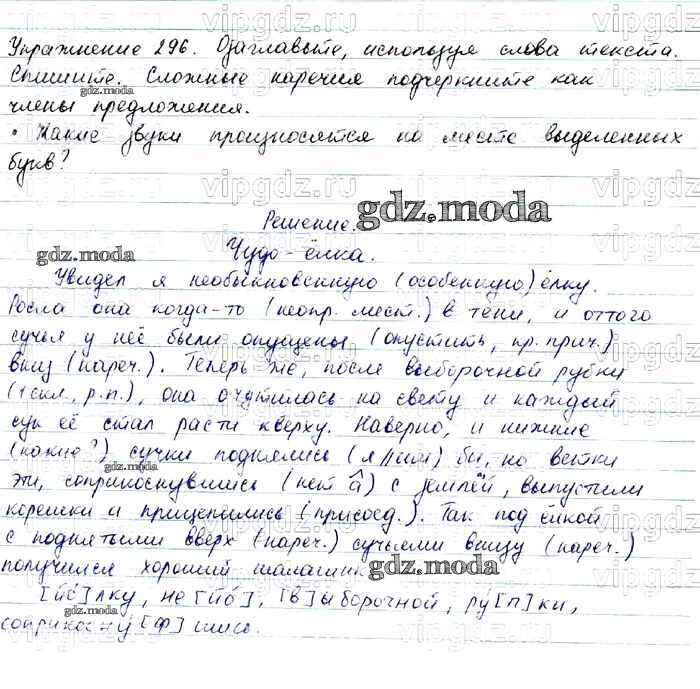 Упражнение 296. Озаглавьте, используя слова текста.
Спишите. Сложные наречия подчеркните как
gdz.moda
члены предложения.
• Какие звуки произносятся на месте выделенных
букв?
Решение.
gdz.moda
Чудо-ёлка.
gdz.moda
Увидел я необыкновенную (особенную) ёлку.
Росла она когда-то (неопр. мест.) в тени, и оттого
сучья у неё были опущены (опустить, пр. прич.)
вниз (нареч.). Теперь же, после выборочной рубки
(1 скл., р.п.), она очутилась на свету и каждый
сук её стал расти кверху. Наверно, и нижние
(какие?) сучки поднялись (я//им) бы, но ветки
gdz.moda
эти, соприкоснувшись (нет â) с землёй, выпустили
корешки и прицепились (присоед.). Так под ёлкой
с поднятыми вверх (нареч.) сучьями внизу (нареч.)
получился хороший шалашик
gdz.moda
[йо]лку, не[йо], [в]ыборочной, ру[п]ки,
соприкосну[ф]шись.
vipgdz.ru